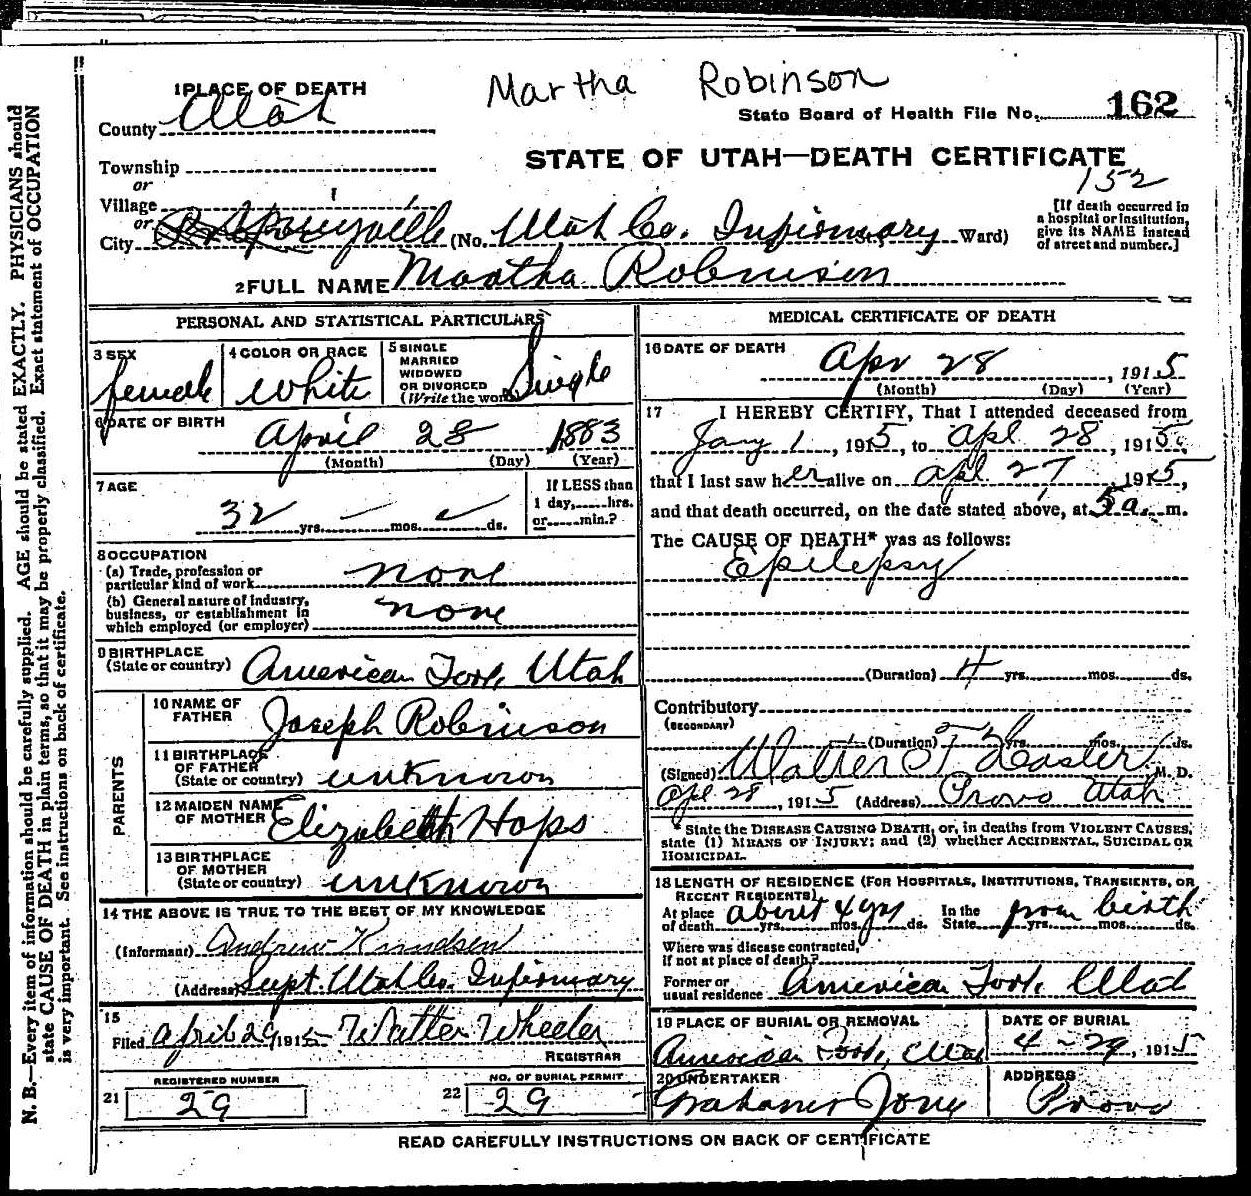 Martha Robinson
1 PLACE OF DEATH
County Utah
State Board of Health File No. 162
Township
or
Village
or
City Springville (No. Utah Co. Infirmary St.; Ward)
STATE OF UTAH—DEATH CERTIFICATE
152
[If death occurred in
a hospital or institution,
give its NAME instead
of street and number.]
2 FULL NAME Martha Robinson
PERSONAL AND STATISTICAL PARTICULARS
3 SEX
female
4 COLOR OR RACE
White
5 SINGLE
MARRIED
WIDOWED
OR DIVORCED
(Write the word)
Single
6 DATE OF BIRTH
April 28 1883
(Month) (Day) (Year)
7 AGE
32 yrs. mos. ds.
If LESS than
1 day,......hrs.
or......min.?
8 OCCUPATION
(a) Trade, profession or
particular kind of work none
(b) General nature of industry,
business, or establishment in
which employed (or employer) none
9 BIRTHPLACE
(State or country) American Fork, Utah
PARENTS
10 NAME OF
FATHER Joseph Robinson
11 BIRTHPLACE
OF FATHER
(State or country) unknown
12 MAIDEN NAME
OF MOTHER Elizabeth Hops
13 BIRTHPLACE
OF MOTHER
(State or country) unknown
14 THE ABOVE IS TRUE TO THE BEST OF MY KNOWLEDGE
(Informant) Andrew Knudsen
(Address) Supt. Utah Co. Infirmary
15
Filed April 29 1915 Walter Wheeler
REGISTRAR
REGISTERED NUMBER
21 29
NO. OF BURIAL PERMIT
22 29
MEDICAL CERTIFICATE OF DEATH
16 DATE OF DEATH
Apr 28, 1915
(Month) (Day) (Year)
17 I HEREBY CERTIFY, That I attended deceased from
Jany 1, 1915, to Apl 28, 1915,
that I last saw her alive on Apl. 27, 1915,
and that death occurred, on the date stated above, at 5 a. m.
The CAUSE OF DEATH* was as follows:
Epilepsy
(Duration) 4 yrs. mos. ds.
Contributory
(SECONDARY)
(Duration) yrs. mos. ds.
(Signed) Walter T Hasler M. D.
Apl 28, 1915 (Address) Provo Utah
*State the DISEASE CAUSING DEATH, or, in deaths from VIOLENT CAUSES,
state (1) MEANS OF INJURY; and (2) whether ACCIDENTAL, SUICIDAL OR
HOMICIDAL.
18 LENGTH OF RESIDENCE (FOR HOSPITALS, INSTITUTIONS, TRANSIENTS, OR
RECENT RESIDENTS)
At place
of death about 4 yrs yrs. mos. ds. In the
State from birth yrs. mos. ds.
Where was disease contracted,
if not at place of death?
Former or
usual residence American Fork, Utah
19 PLACE OF BURIAL OR REMOVAL
American Fork, Utah
DATE OF BURIAL
4-29, 1915
20 UNDERTAKER
ADDRESS
Provo
READ CAREFULLY INSTRUCTIONS ON BACK OF CERTIFICATE
N. B.—Every item of information should be carefully supplied. AGE should be stated EXACTLY. PHYSICIANS should
state CAUSE OF DEATH in plain terms, so that it may be properly classified. Exact statement of OCCUPATION
is very important. See instructions on back of certificate.